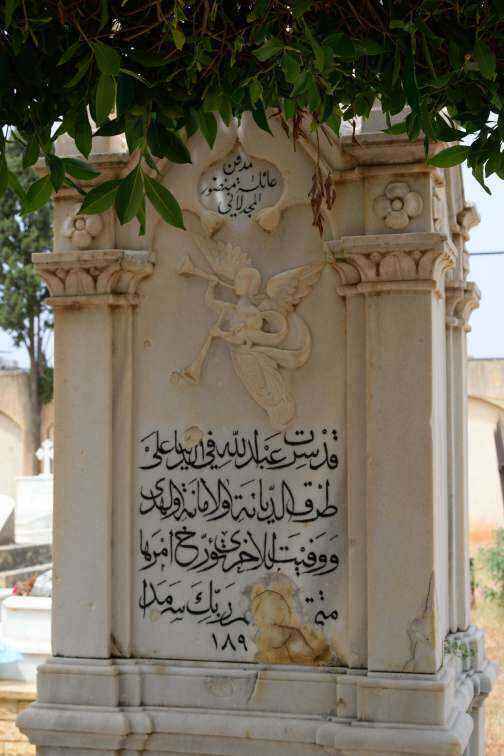 مدفن
عائلة منصور
المجدلاني
قدست عبد الله في الدنيا على
طرق الديانة والامانة والهدى
ووفيت للاخرى تؤرخ امرها
ربك سرمدا
١٨٩